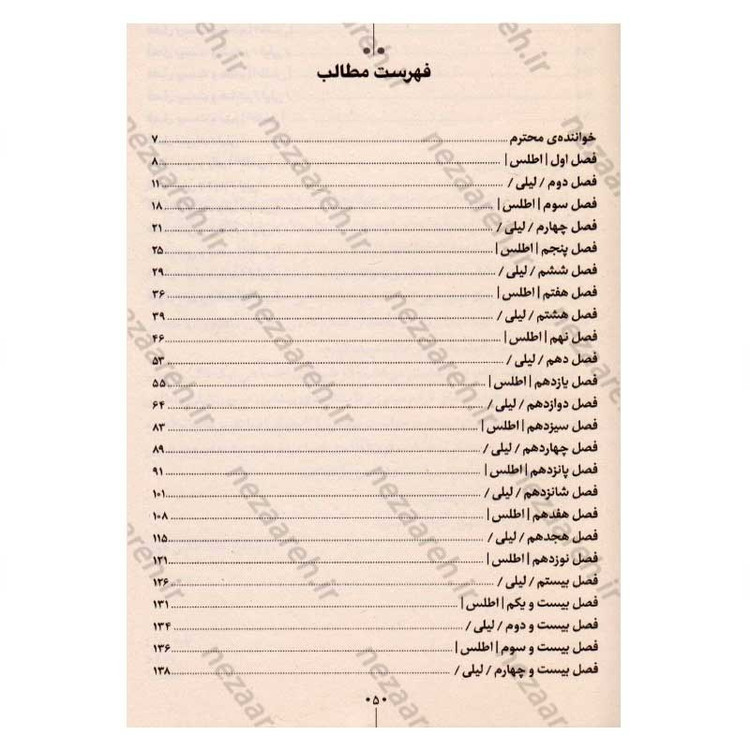 فهرست مطالب
خواننده‌ی محترم ........ ۷
فصل اول | اطلس | ........ ۸
فصل دوم / لیلی / ........ ۱۱
فصل سوم | اطلس | ........ ۱۸
فصل چهارم / لیلی / ........ ۲۱
فصل پنجم | اطلس | ........ ۲۵
فصل ششم / لیلی / ........ ۲۹
فصل هفتم | اطلس | ........ ۳۶
فصل هشتم / لیلی / ........ ۳۹
فصل نهم | اطلس | ........ ۴۶
فصل دهم / لیلی / ........ ۵۳
فصل یازدهم | اطلس | ........ ۵۵
فصل دوازدهم / لیلی / ........ ۶۴
فصل سیزدهم | اطلس | ........ ۸۳
فصل چهاردهم / لیلی / ........ ۸۹
فصل پانزدهم | اطلس | ........ ۹۱
فصل شانزدهم / لیلی / ........ ۱۰۱
فصل هفدهم | اطلس | ........ ۱۰۸
فصل هجدهم / لیلی / ........ ۱۱۵
فصل نوزدهم | اطلس | ........ ۱۲۱
فصل بیستم / لیلی / ........ ۱۲۶
فصل بیست و یکم | اطلس | ........ ۱۳۱
فصل بیست و دوم / لیلی / ........ ۱۳۴
فصل بیست و سوم | اطلس | ........ ۱۳۶
فصل بیست و چهارم / لیلی / ........ ۱۳۸
۵
nezaareh.ir